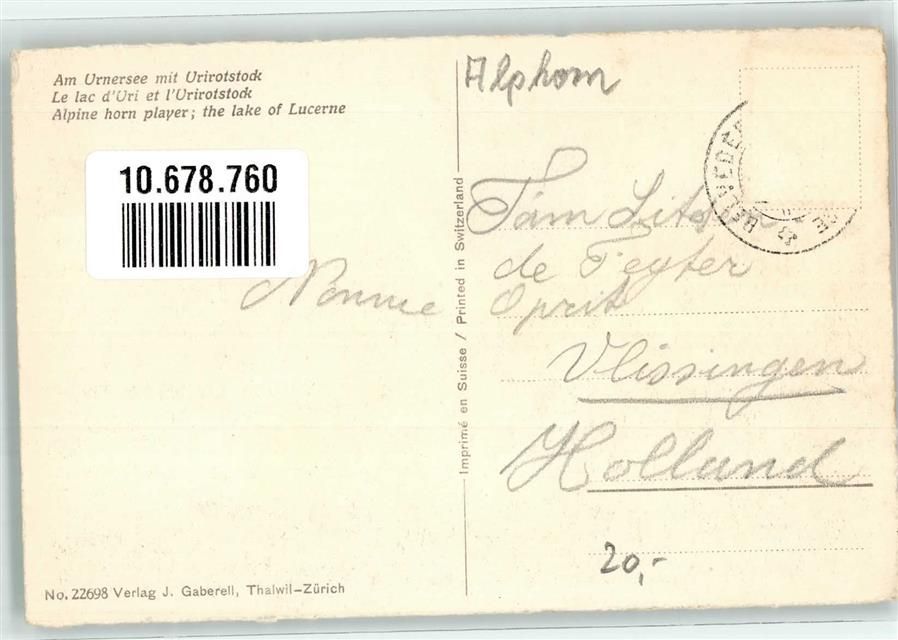 Am Urnersee mit Urirotstock
Le lac d'Uri et l'Urirotstock
Alpine horn player; the lake of Lucerne
10.678.760
Nonnie
No. 22698 Verlag J. Gaberell, Thalwil-Zürich
Imprimé en Suisse / Printed in Switzerland
Alphorn
BELVEDERE
Fam
de Feyter
Oprit
Vlissingen
Holland
20,-